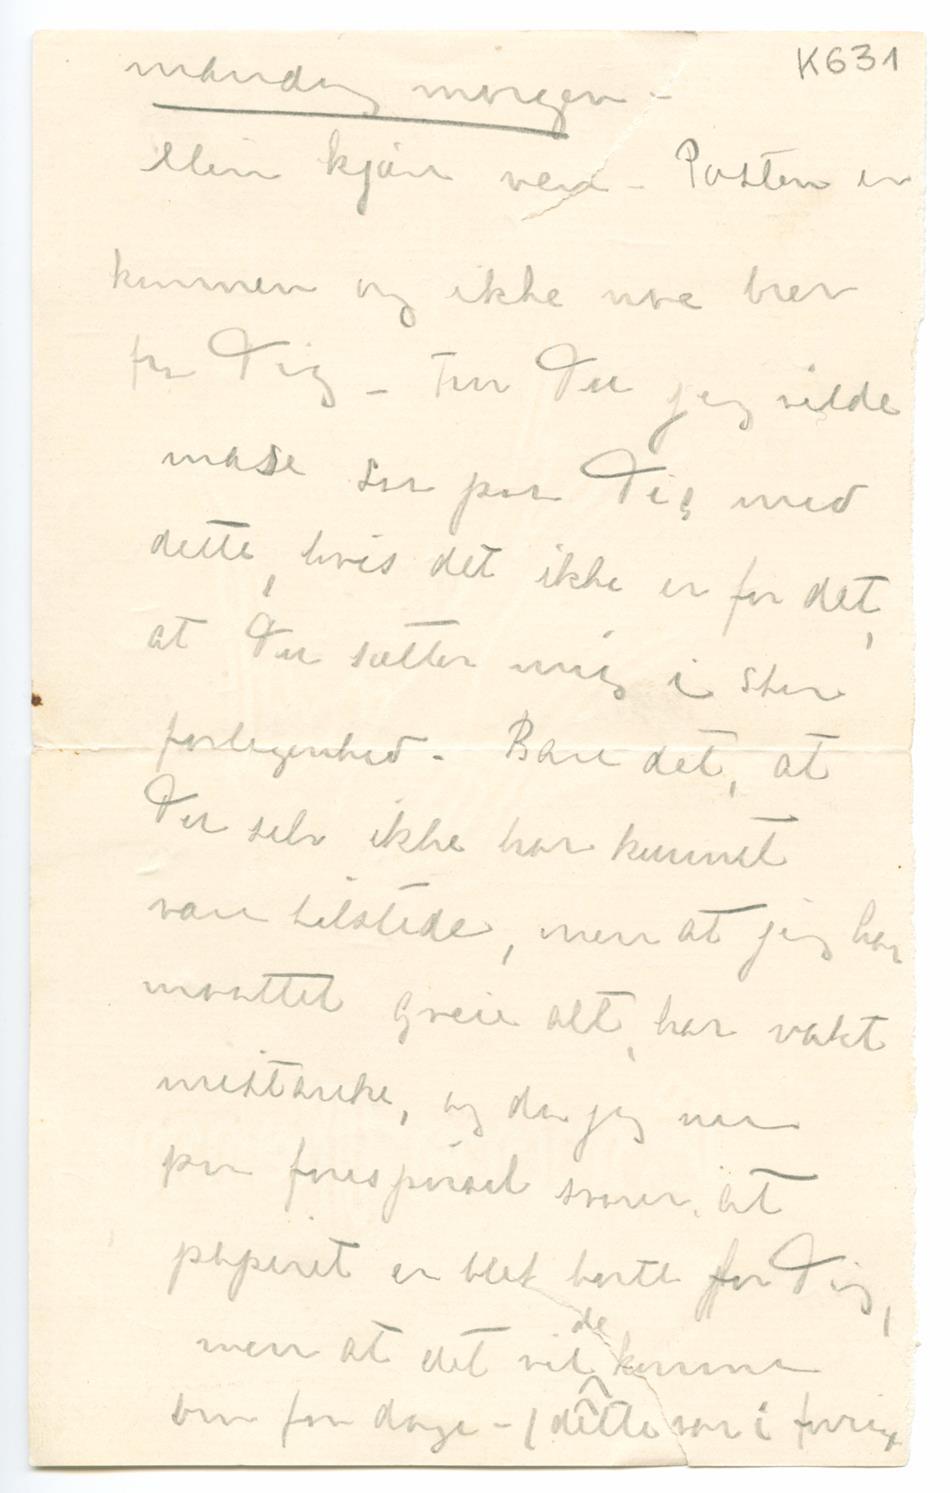 K631
mandag morgen –
Min kjære ven – Posten er
kommen og ikke noe brev
fra Dig – Tror Du jeg vilde
mase saa paa Dig med
dette, hvis det ikke er for det,
at Du sætter mig i stor
forlegenhed – Bare det, at
Du selv ikke har kunnet
være tilstede, men at jeg har
maattet greie alt, har vakt
mistanke, og da jeg naa
paa forespørsel svarer, at
papiret er blet borte for Dig,
men at det vilde komme
om faa dage – (dette var i forrige